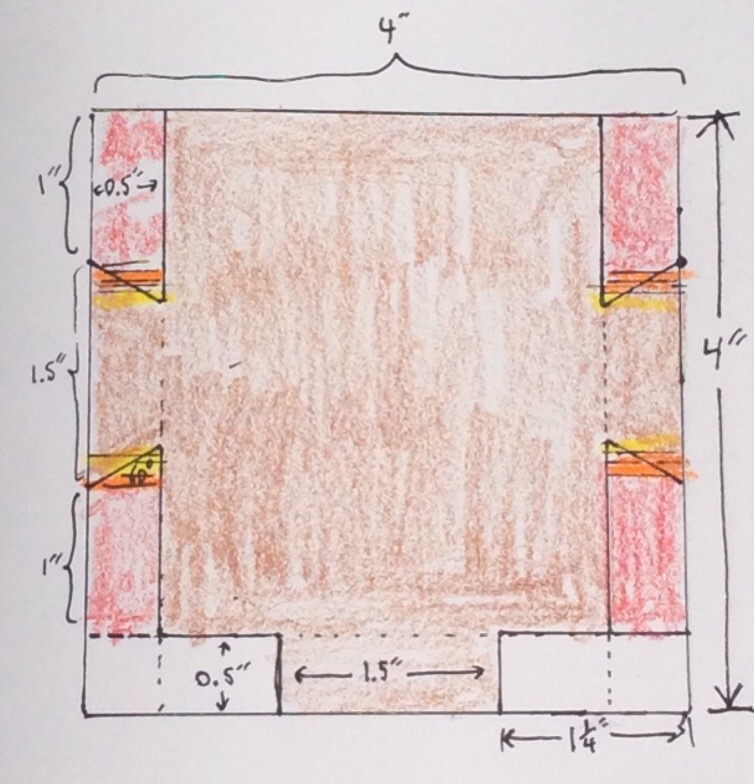 4"
1"
0.5"
1.5"
4"
60°
1"
0.5"
1.5"
1 1/4"